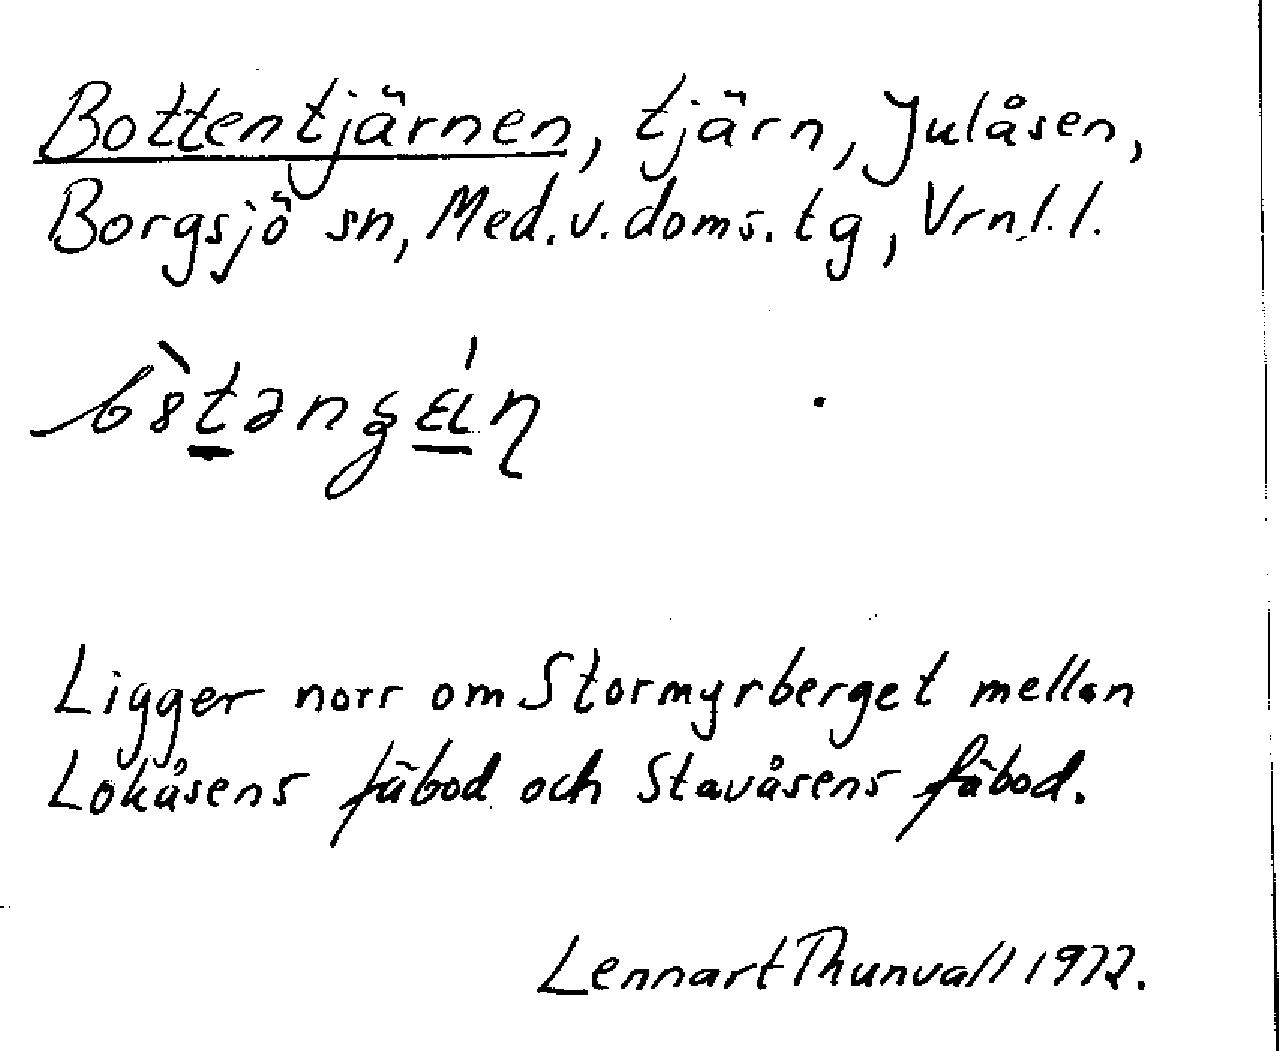 Bottentjärnen, tjärn, Julåsen,
Borgsjö sn, Med. v. doms. tg, Vrnl. l.
Ligger norr om Stormyrberget mellan
Lokåsens fäbod och Stavåsens fäbod.
Lennart Thunvall 1972.